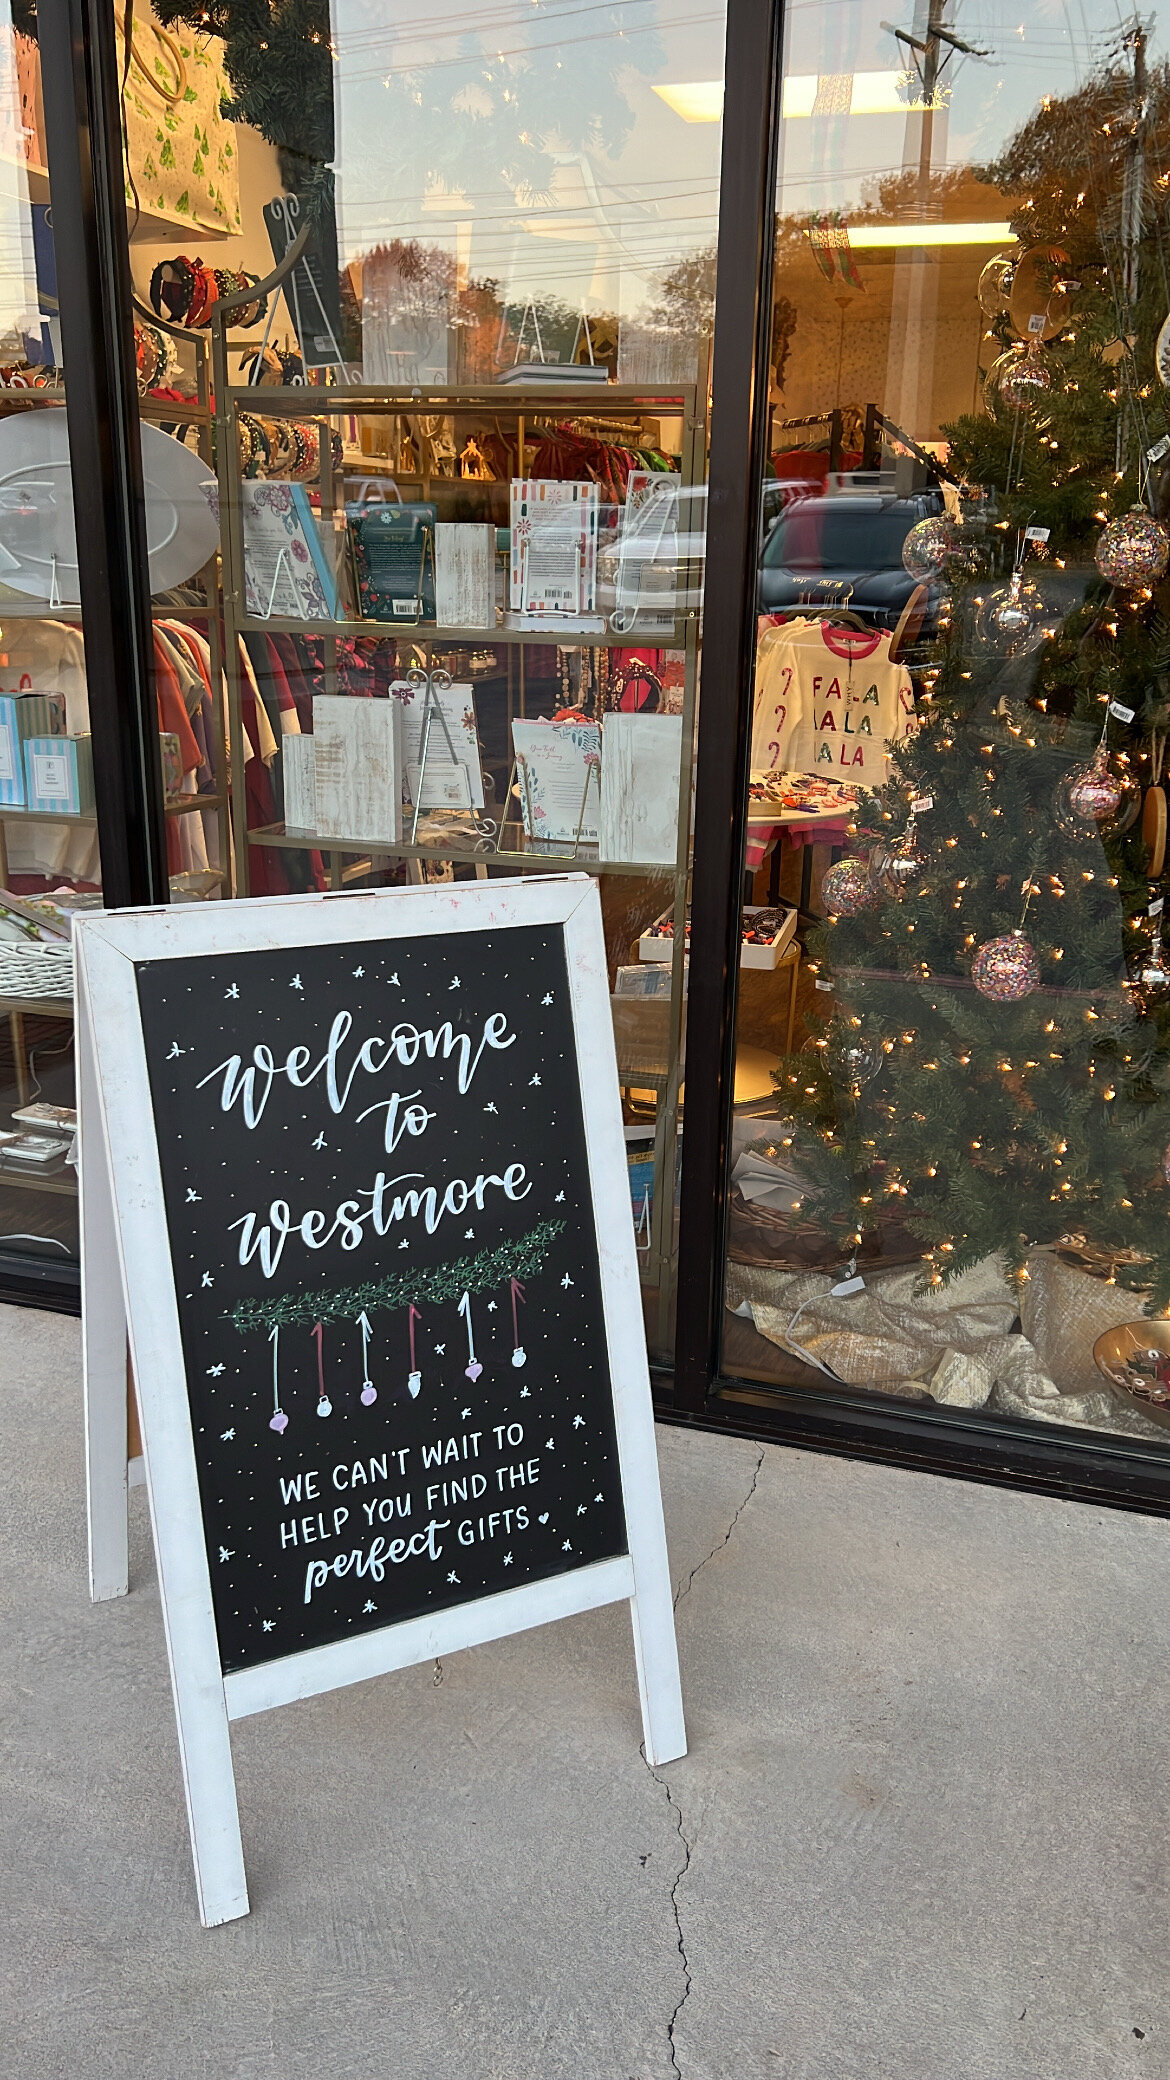 FA LA
LA LA
LA LA
welcome
to
westmore
WE CAN'T WAIT TO
HELP YOU FIND THE
perfect GIFTS